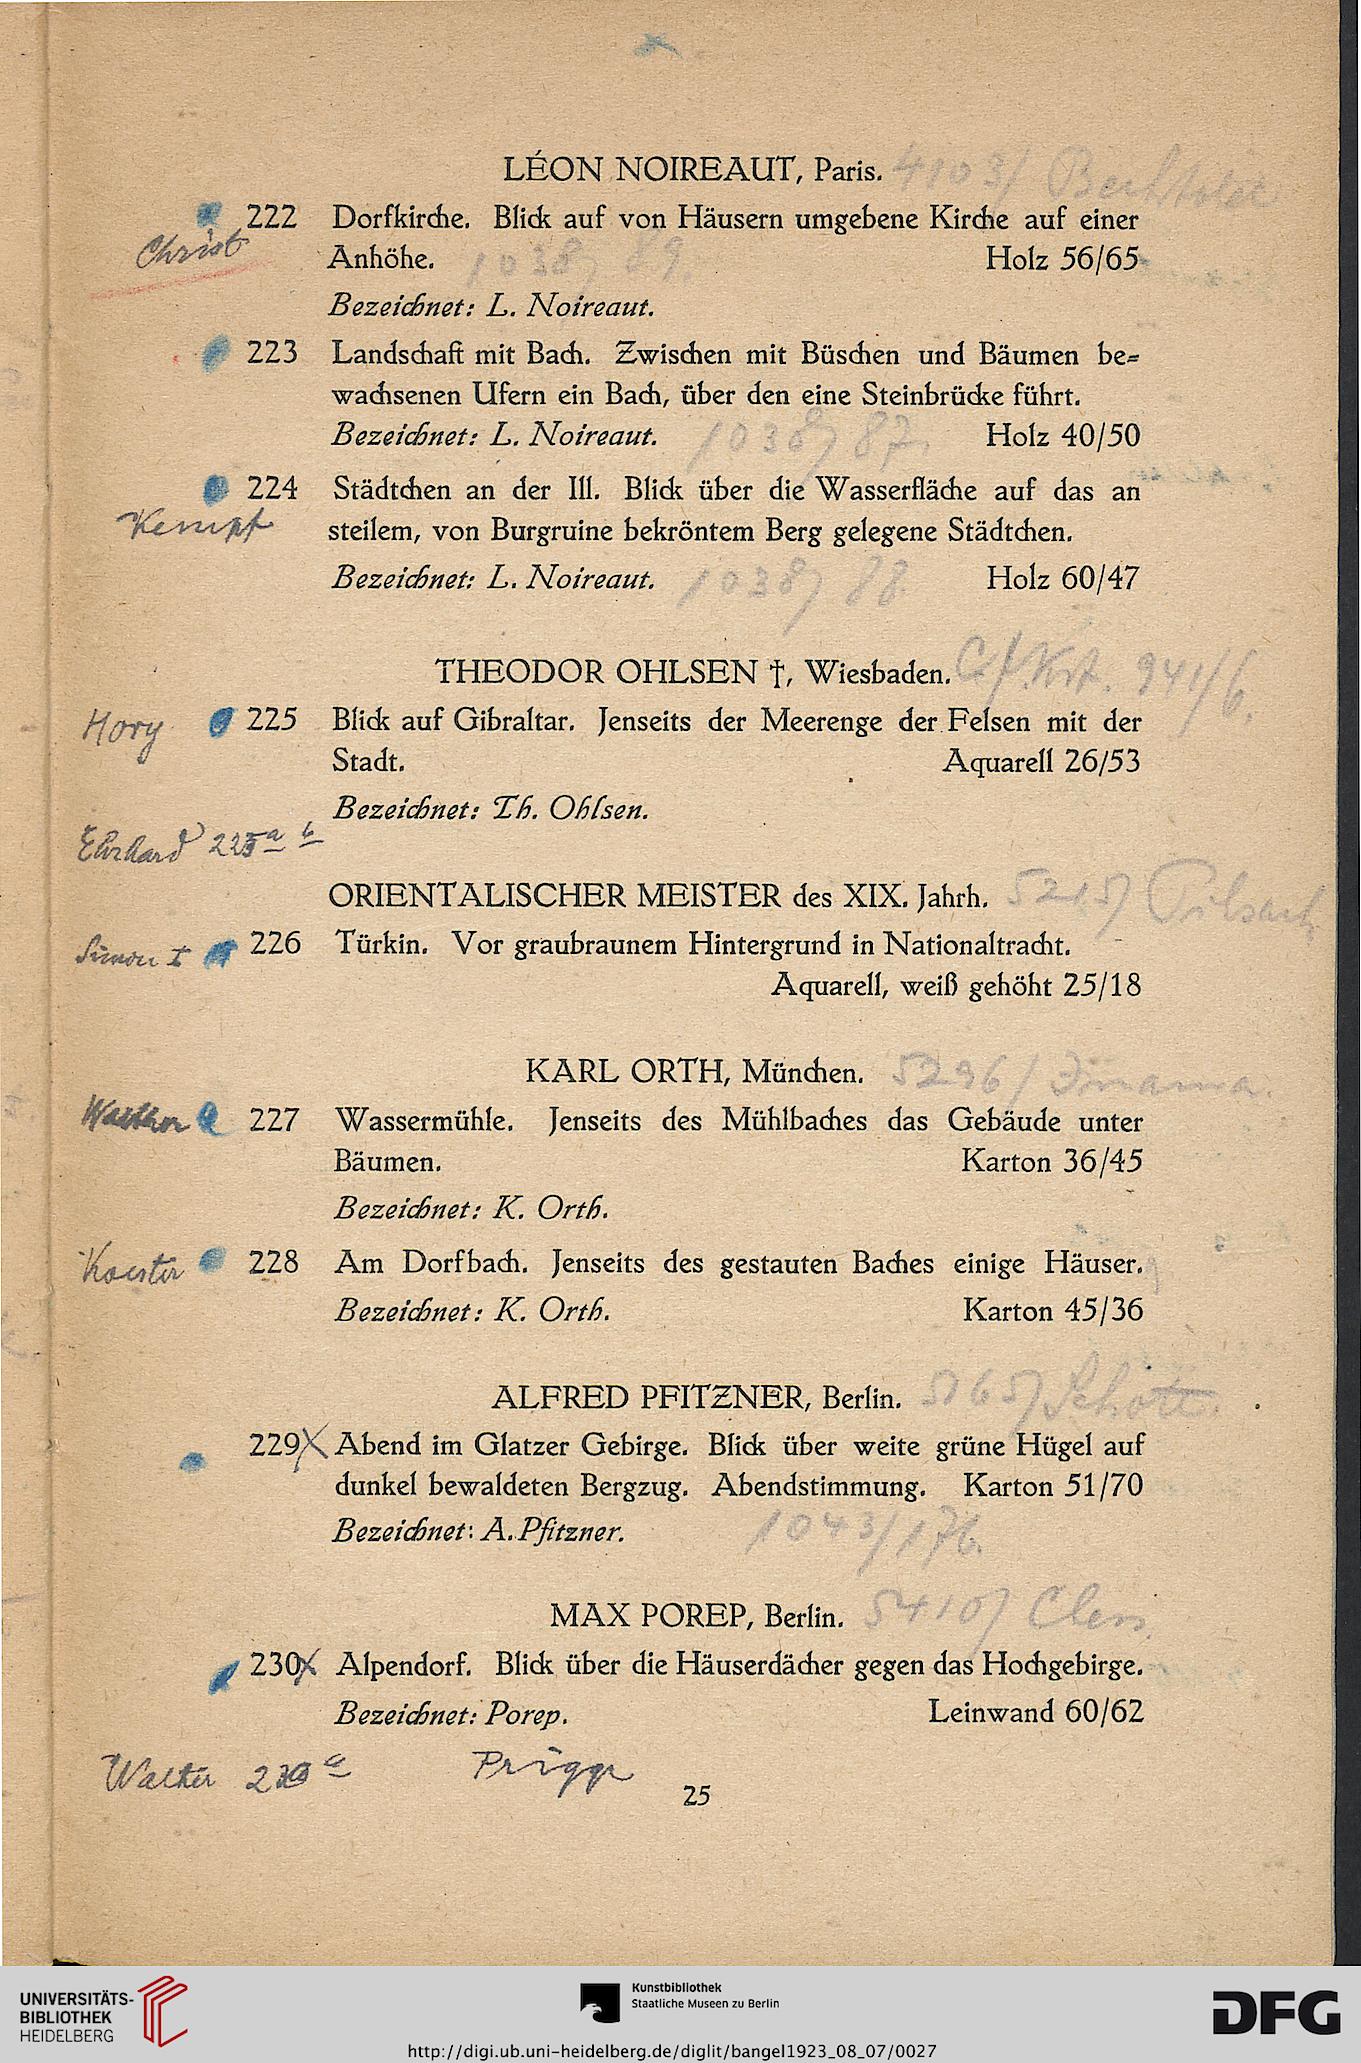 LÉON NOIREAUT, Paris. 4103/
222 Dorfkirche. Blick auf von Häusern umgebene Kirche auf einer
Christ
Anhöhe. 1038/89. Holz 56/65
Bezeichnet: L. Noireaut.
223 Landschaft mit Bach. Zwischen mit Büschen und Bäumen be=
wachsenen Ufern ein Bach, über den eine Steinbrücke führt.
Bezeichnet: L. Noireaut. 1038/87. Holz 40/50
224 Städtchen an der Ill. Blick über die Wasserfläche auf das an
Kempf steilem, von Burgruine bekröntem Berg gelegene Städtchen.
Bezeichnet: L. Noireaut. 1038/88. Holz 60/47
THEODOR OHLSEN †, Wiesbaden. 941/6.
Hory 225 Blick auf Gibraltar. Jenseits der Meerenge der Felsen mit der
Stadt. Aquarell 26/53
Bezeichnet: Th. Ohlsen.
Ehrhard 225a b
ORIENTALISCHER MEISTER des XIX. Jahrh. 5215/ Pilsach
Simon I 226 Türkin. Vor graubraunem Hintergrund in Nationaltracht.
Aquarell, weiß gehöht 25/18
KARL ORTH, München. 5296/
227 Wassermühle. Jenseits des Mühlbaches das Gebäude unter
Bäumen. Karton 36/45
Bezeichnet: K. Orth.
Koester 228 Am Dorfbach. Jenseits des gestauten Baches einige Häuser.
Bezeichnet: K. Orth. Karton 45/36
ALFRED PFITZNER, Berlin. 5165/ Schott.
229 X Abend im Glatzer Gebirge. Blick über weite grüne Hügel auf
dunkel bewaldeten Bergzug. Abendstimmung. Karton 51/70
Bezeichnet: A. Pfitzner. 1043/176.
MAX POREP, Berlin. 5410/
230 X Alpendorf. Blick über die Häuserdächer gegen das Hochgebirge.
Bezeichnet: Porep. Leinwand 60/62
Walter 230a
25
UNIVERSITÄTS-
BIBLIOTHEK
HEIDELBERG
Kunstbibliothek
Staatliche Museen zu Berlin
DFG
http://digi.ub.uni-heidelberg.de/diglit/bangel1923_08_07/0027